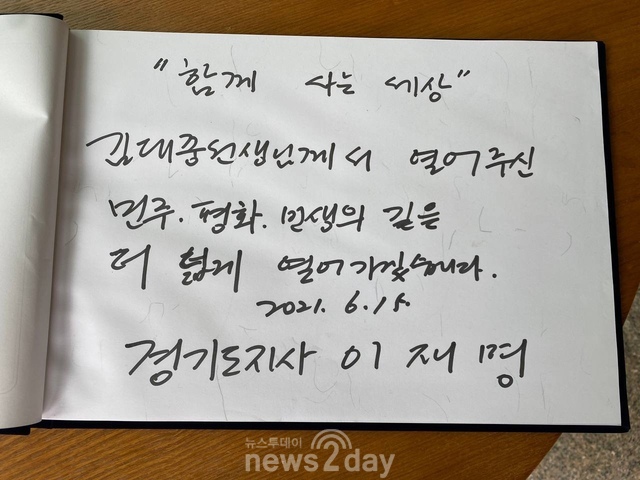 "함께 사는 세상"
김대중선생님께서 열어주신
민주. 평화. 민생의 길을
더 넓게 열어가겠습니다.
2021. 6. 15.
경기도지사 이재명
뉴스투데이
news2day